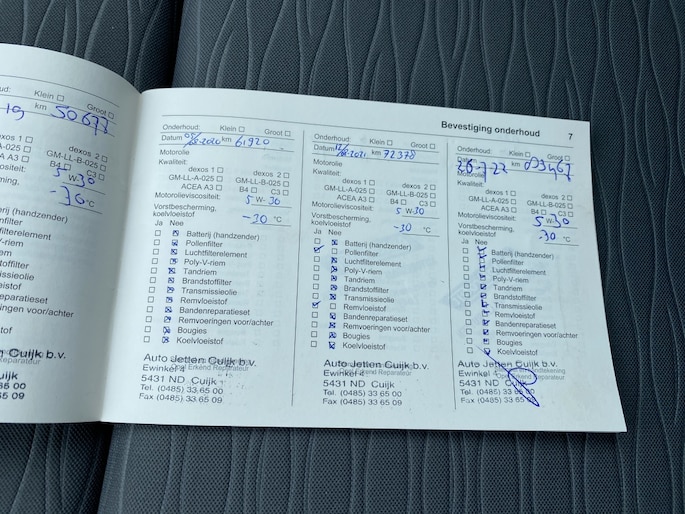 ud: Klein Groot
19 km 50677
exos 1 dexos 2
-025 GM-LL-B-025
A A3 B4 C3
5 W- 30
ning,
-30 °C
erij (handzender)
nfilter
filterelement
V-riem
iem
stoffilter
missieolie
loeistof
nreparatieset
eringen voor/achter
s
stof
en Cuijk b.v.
Reparateur
ijk
65 00
65 09
Bevestiging onderhoud 7
Onderhoud: Klein Groot
Datum km 61920
Motorolie
Kwaliteit:
dexos 1 dexos 2
GM-LL-A-025 GM-LL-B-025
ACEA A3 B4 C3
Motorolieviscositeit: 5 W- 30
Vorstbescherming,
koelvloeistof -30 °C
Ja Nee
Batterij (handzender)
Pollenfilter
Luchtfilterelement
Poly-V-riem
Tandriem
Brandstoffilter
Transmissieolie
Remvloeistof
Bandenreparatieset
Remvoeringen voor/achter
Bougies
Koelvloeistof
Auto Jetten Cuijk b.v.
Opel Erkend Reparateur
Ewinkel 4
5431 ND Cuijk
Tel. (0485) 33 65 00
Fax (0485) 33 65 09
Onderhoud: Klein Groot
Datum km 72378
Motorolie
Kwaliteit:
dexos 1 dexos 2
GM-LL-A-025 GM-LL-B-025
ACEA A3 B4 C3
Motorolieviscositeit: 5 W- 30
Vorstbescherming,
koelvloeistof -30 °C
Ja Nee
Batterij (handzender)
Pollenfilter
Luchtfilterelement
Poly-V-riem
Tandriem
Brandstoffilter
Transmissieolie
Remvloeistof
Bandenreparatieset
Remvoeringen voor/achter
Bougies
Koelvloeistof
Auto Jetten Cuijk b.v.
Opel Erkend Reparateur
Ewinkel 4
5431 ND Cuijk
Tel. (0485) 33 65 00
Fax (0485) 33 65 09
Onderhoud: Klein Groot
Datum 26-7-22 km 093467
Motorolie
Kwaliteit:
dexos 1 dexos 2
GM-LL-A-025 GM-LL-B-025
ACEA A3 B4 C3
Motorolieviscositeit: 5 W- 30
Vorstbescherming,
koelvloeistof -30 °C
Ja Nee
Batterij (handzender)
Pollenfilter
Luchtfilterelement
Poly-V-riem
Tandriem
Brandstoffilter
Transmissieolie
Remvloeistof
Bandenreparatieset
Remvoeringen voor/achter
Bougies
Koelvloeistof
Auto Jetten Cuijk b.v.
Ewinkel
5431 ND Cuijk
Tel. (0485) 33 65 00
Fax (0485) 33 65 09